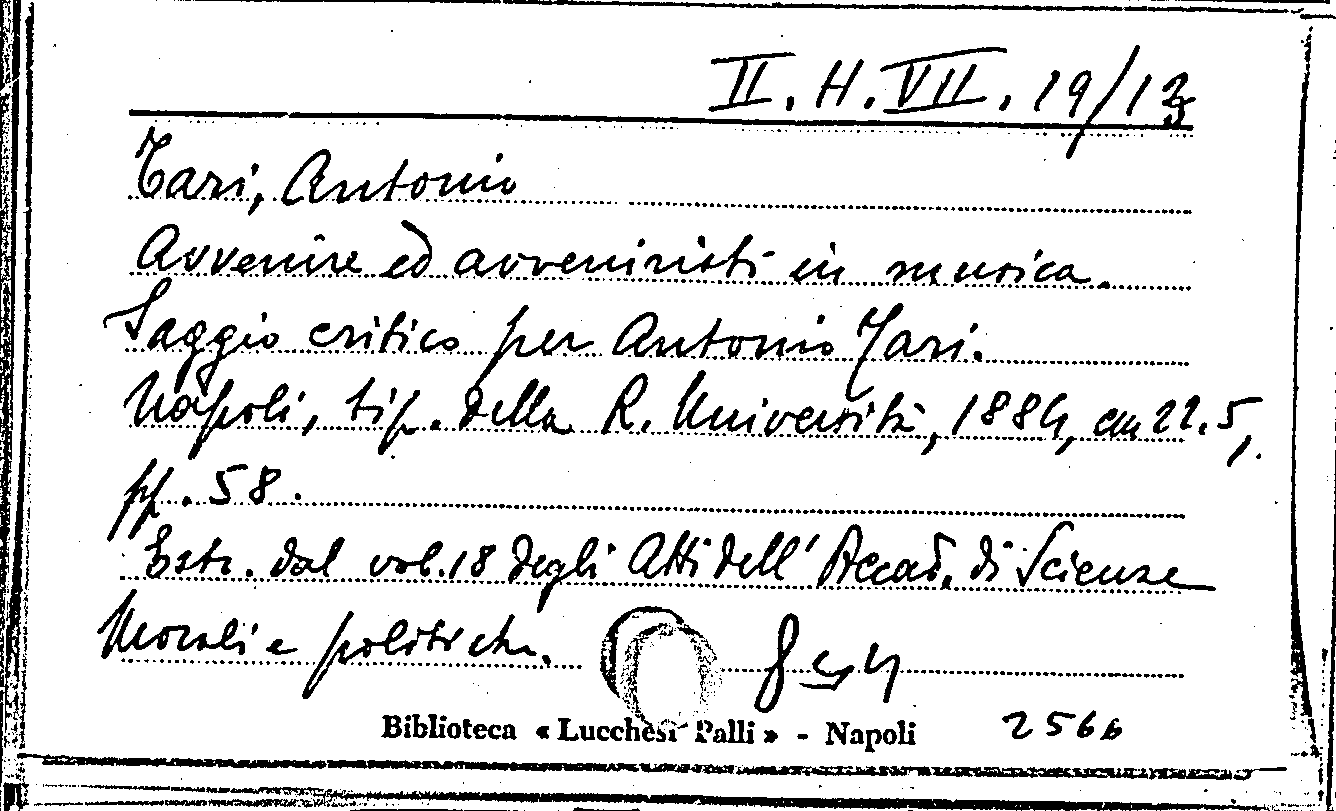 II. H. VII. 19/13
Tari, Antonio
Avvenire ed avveniristi in musica.
Saggio critico per Antonio Tari.
Napoli, tip. della R. Università, 1884, cm 22.5,
pp. 58.
Estr. dal vol. 18 degli Atti dell' Accad. di Scienze
Morali e politiche.
Biblioteca « Lucchesi Palli » - Napoli 2566